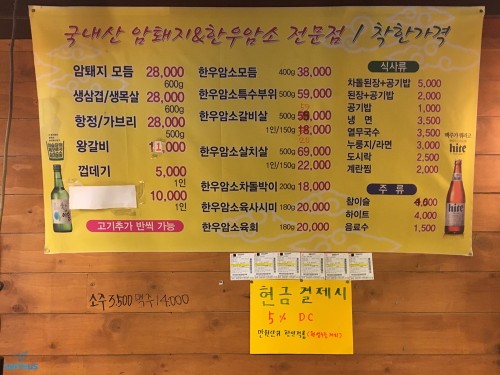 국내산 암돼지&한우암소 전문점 / 착한가격
암돼지 모듬 28,000
600g
생삼겹/생목살 28,000
600g
항정/가브리 28,000
500g
왕갈비 11,000
껍데기 5,000
1인
10,000
1인
고기추가 반씩 가능
한우암소모듬 400g 38,000
한우암소특수부위 500g 59,000
한우암소갈비살 500g
1인/150g 18,000
한우암소살치살 500g 69,000
1인/150g 22,000
한우암소차돌박이 200g 18,000
한우암소육사시미 180g 20,000
한우암소육회 180g 20,000
식사류
차돌된장+공기밥 5,000
된장+공기밥 2,000
공기밥 1,000
냉 면 3,000
열무국수 3,500
누룽지/라면 3,000
도시락 2,500
계란찜 2,000
주 류
참이슬
하이트 4,000
음료수 1,500
hite
소주 3,500 맥주 14,000
현금결제시
5% DC